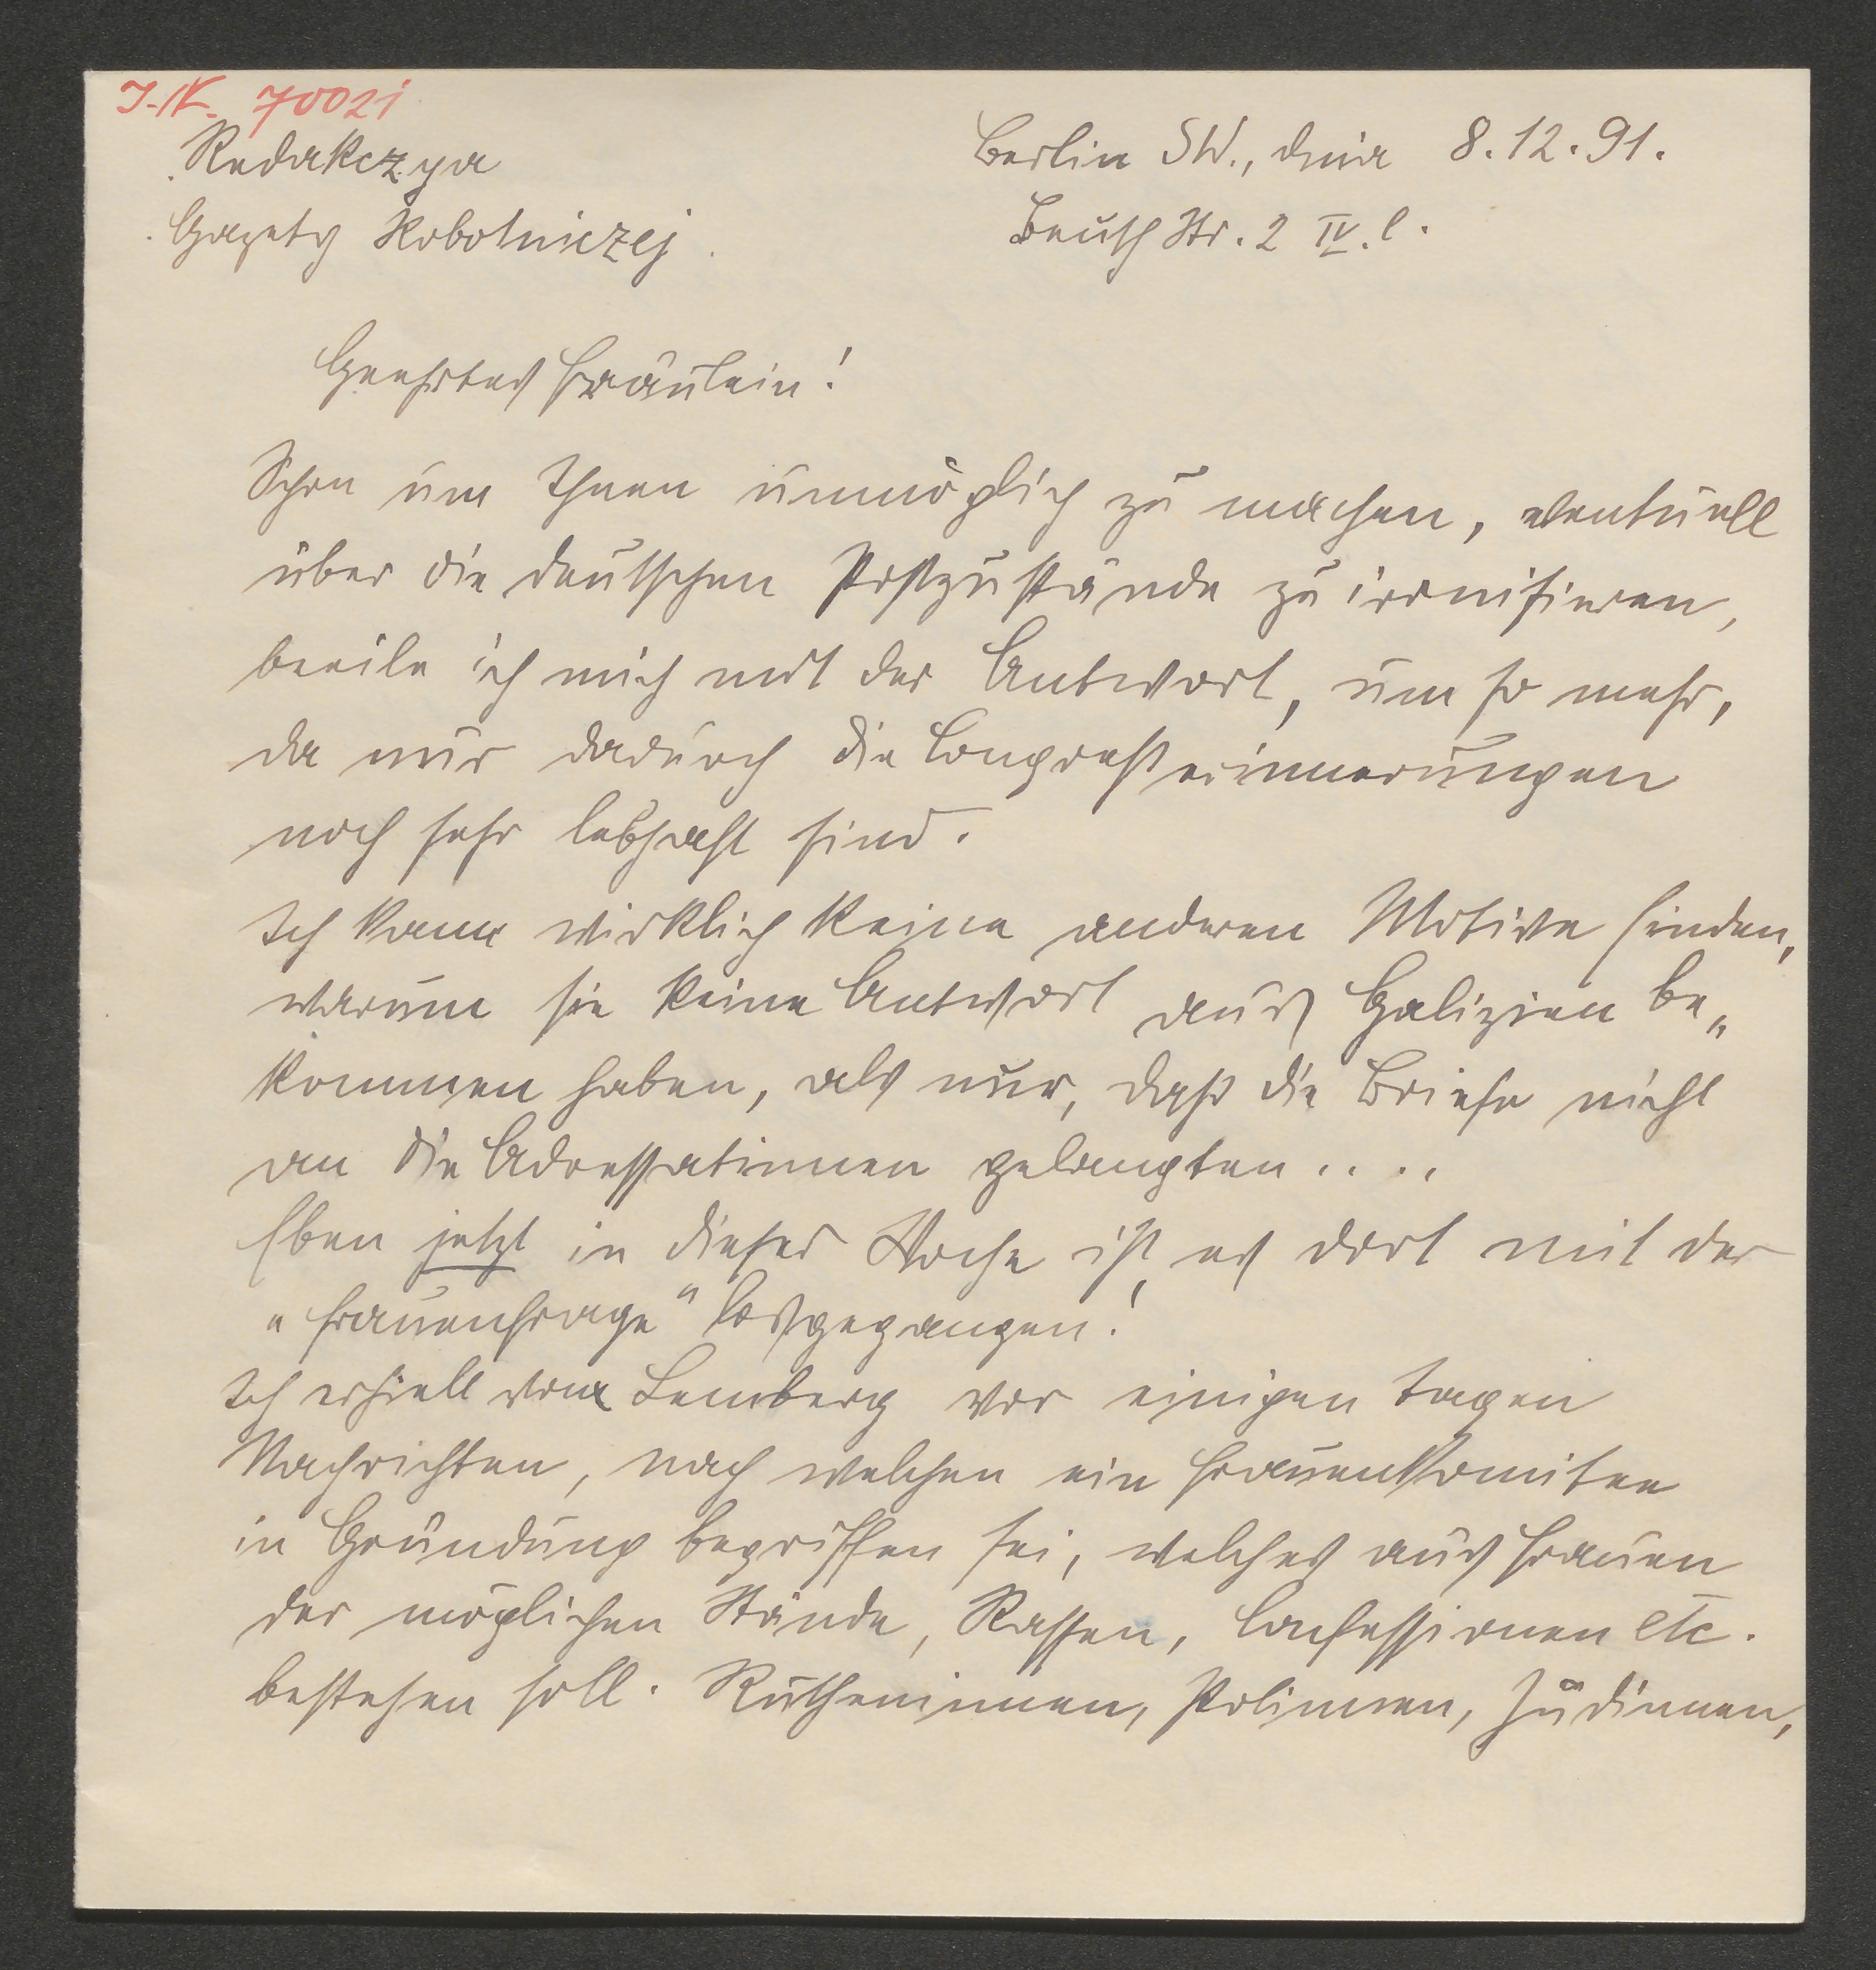 I.N. 70021
Redakczya
Gazety Robotniczej
Berlin SW., dnia 8.12.91.
Beuth Str. 2 IV. l.
Geehrtes Fräulein!
Schon um Ihnen unmöglich zu machen, eventuell
über die deutschen Postzustände zu ironisieren,
beeile ich mich mit der Antwort, um so mehr,
da mir dadurch die Congresserinnerungen
noch sehr lebhaft sind.
Ich kann wirklich keine anderen Motive finden,
warum sie keine Antwort aus Galizien be„
kommen haben, als nur, dass die Briefe nicht
an die Adressatinnen gelangten....
Eben jetzt in dieser Woche ist es dort mit der
„Frauenfrage" losgegangen!
Ich erhielt von Lemberg vor einigen Tagen
Nachrichten, nach welchen ein Frauenkomitee
in Gründung begriffen sei, welches aus Frauen
der möglichen Stände, Rassen, Confessionen etc.
bestehen soll. Rutheninnen, Polinnen, Jüdinnen,